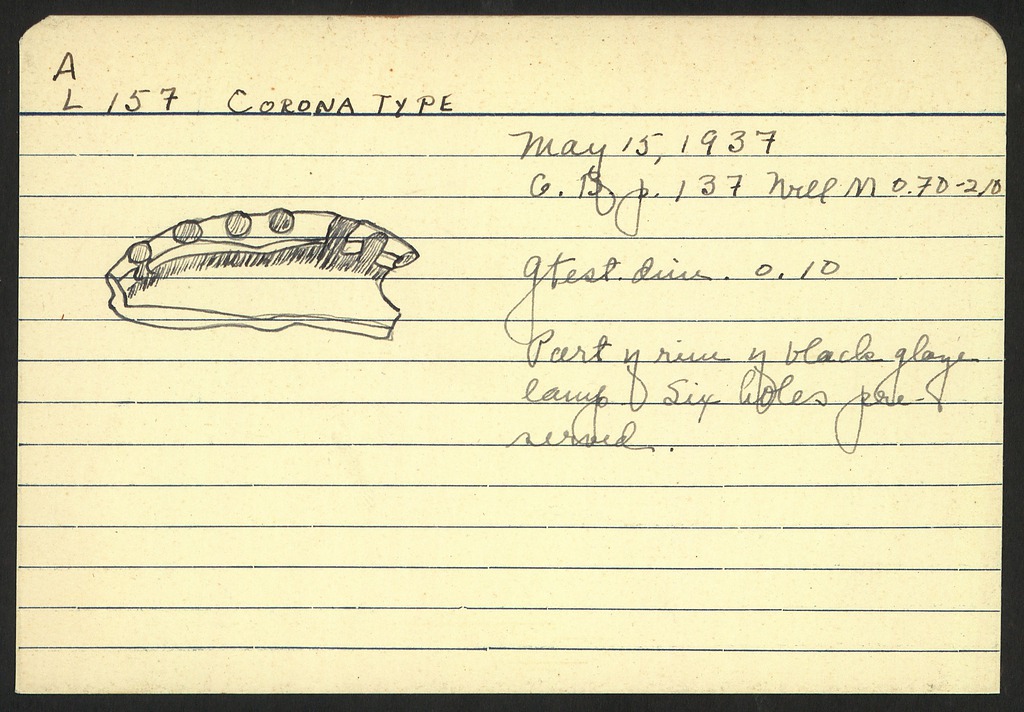 A
L 157 CORONA TYPE
May 15, 1937
G. B. p. 137 Well M 0.70-2.10
Gtest. dim. 0.10
Part of rim of black glaze
lamp. Six holes pre-
served.